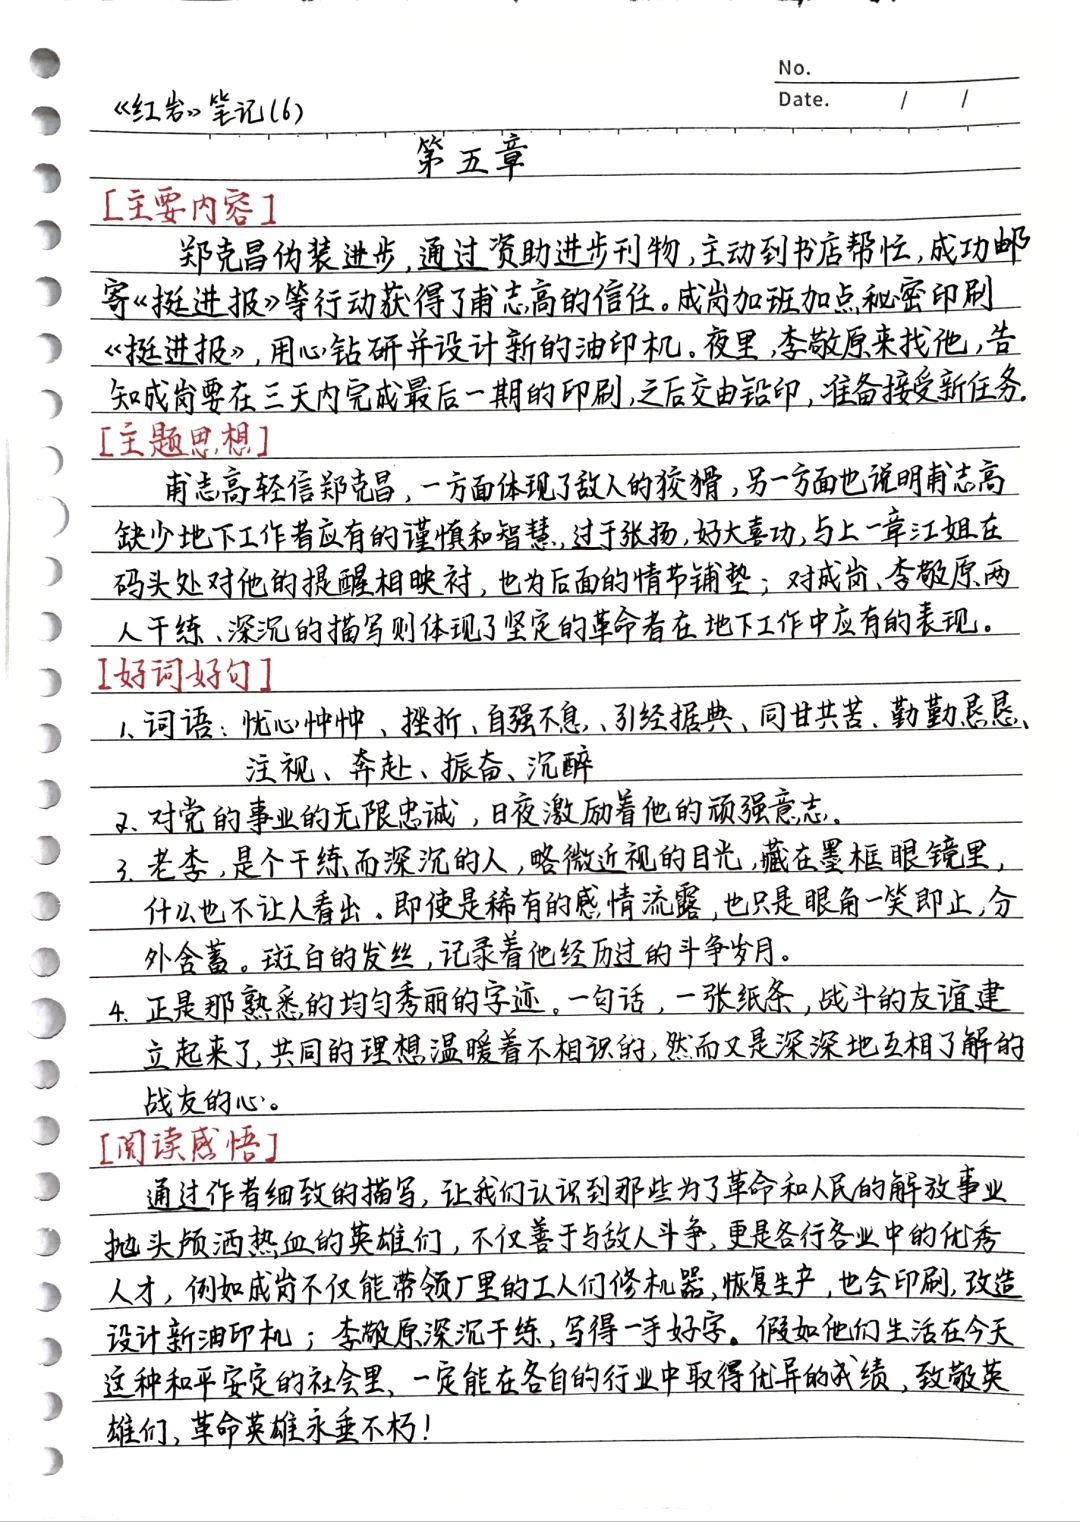 No.
Date.    /    /
《红岩》笔记(6)
第五章
[主要内容]
郑克昌伪装进步,通过资助进步刊物,主动到书店帮忙,成功邮
寄《挺进报》等行动获得了甫志高的信任。成岗加班加点秘密印刷
《挺进报》,用心钻研并设计新的油印机。夜里,李敬原来找他,告
知成岗要在三天内完成最后一期的印刷,之后交由铅印,准备接受新任务.
[主题思想]
甫志高轻信郑克昌,一方面体现了敌人的狡猾,另一方面也说明甫志高
缺少地下工作者应有的谨慎和智慧,过于张扬,好大喜功,与上一章江姐在
码头处对他的提醒相映衬,也为后面的情节铺垫;对成岗、李敬原两
人干练、深沉的描写则体现了坚定的革命者在地下工作中应有的表现。
[好词好句]
1.词语:忧心忡忡、挫折、自强不息、引经据典、同甘共苦、勤勤恳恳、
注视、奔赴、振奋、沉醉
2.对党的事业的无限忠诚,日夜激励着他的顽强意志。
3.老李,是个干练而深沉的人,略微近视的目光,藏在墨框眼镜里,
什么也不让人看出。即使是稀有的感情流露,也只是眼角一笑即止,分
外含蓄。斑白的发丝,记录着他经历过的斗争岁月。
4.正是那熟悉的均匀秀丽的字迹。一句话,一张纸条,战斗的友谊建
立起来了,共同的理想温暖着不相识的,然而又是深深地互相了解的
战友的心。
[阅读感悟]
通过作者细致的描写,让我们认识到那些为了革命和人民的解放事业
抛头颅洒热血的英雄们,不仅善于与敌人斗争,更是各行各业中的优秀
人才,例如成岗不仅能带领厂里的工人们修机器,恢复生产,也会印刷,改造
设计新油印机;李敬原深沉干练,写得一手好字。假如他们生活在今天
这种和平安定的社会里,一定能在各自的行业中取得优异的成绩,致敬英
雄们,革命英雄永垂不朽!